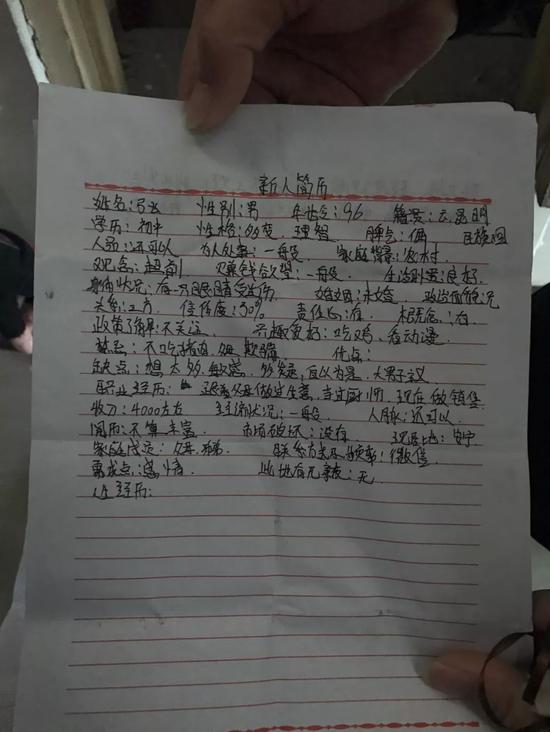 新人简历
姓名:弓长 性别:男 年龄:96 籍贯:云昆明
学历:初中 性格:多变 理智 脾气:倔 民族:回
人品:还可以 为人处事:一般 家庭情景:农村
观念:超前 赚钱欲望:一般 生活习惯:良好
身体状况:右分眼睛受伤 婚姻:未婚
关系:工方 信任度:50% 责任心:有 相信心:有
政策了解:不关注 兴趣爱好:吃鸡 看动漫
禁忌:不吃猪肉 欺骗 优点:
缺点:想太多 敏感 多疑,自以为是 大男子主义
职业经历: 跟着父母做过生意,当过厨师 现在做销售
收入:4000左右 经济状况:一般 人脉:还可以
阅历:不算丰富 市场破坏:没有 现居地:安宁
家庭成员: 母 弟弟 联络方式及频率:微信
要发点:感情 此地有无亲友:无
经历: